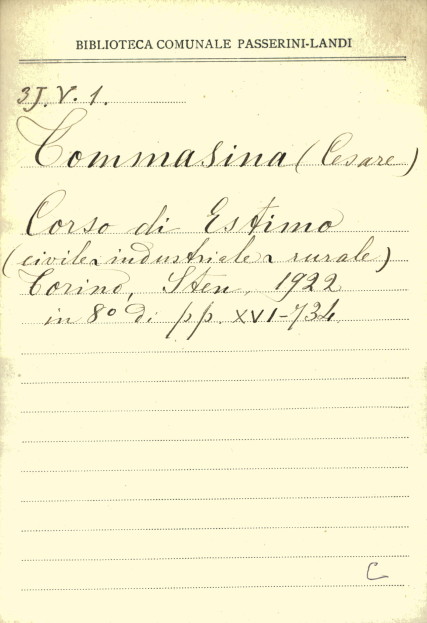 BIBLIOTECA COMUNALE PASSERINI-LANDI
3J.V.1.
Tommasina (Cesare)
Corso di Estimo
(civile, industriale, rurale)
Torino, Sten, 1922
in 8° di pp. XVI-734
C